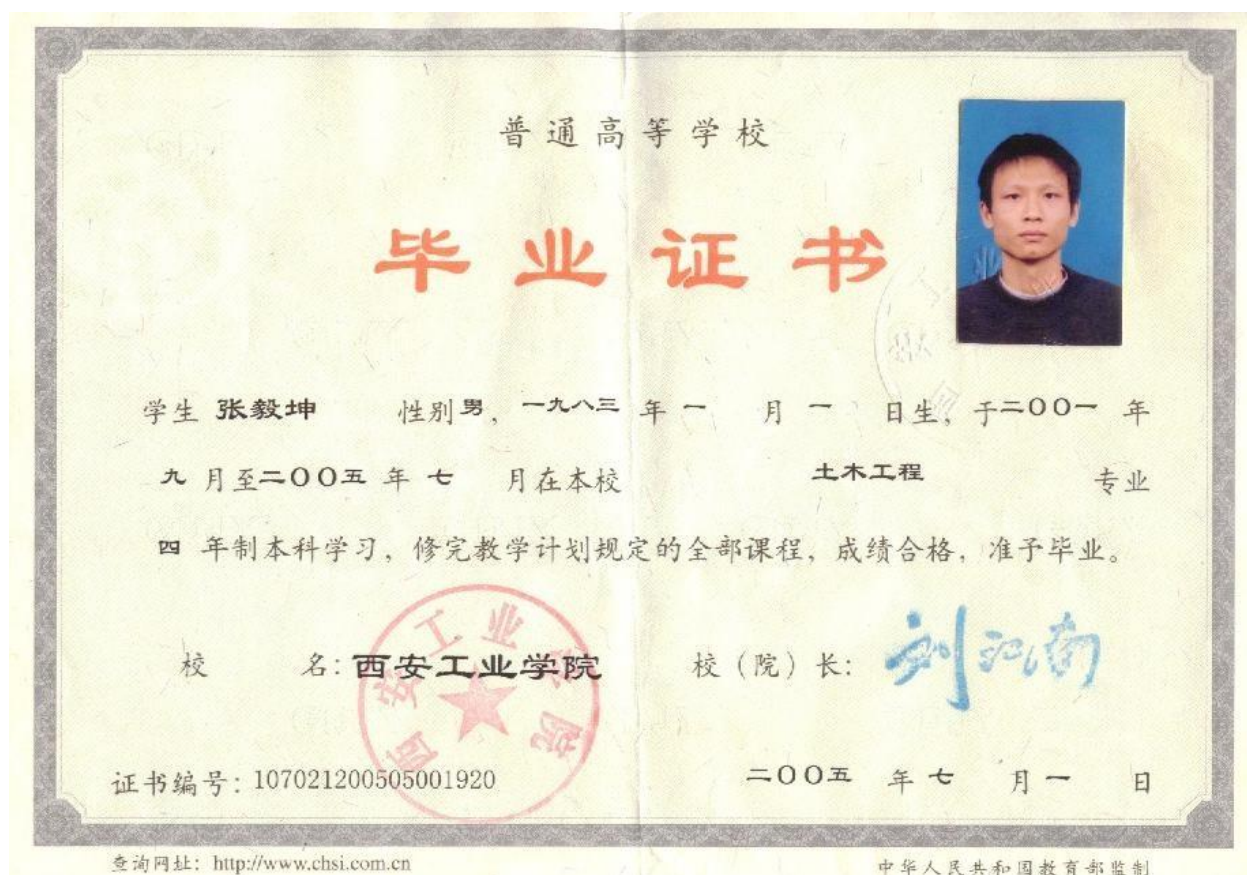 普通高等学校
毕业证书
学生 张毅坤 性别男，一九八三 年 一 月 一 日生，于二〇〇一 年
九 月至二〇〇五 年 七 月在本校 土木工程 专业
四 年制本科学习，修完教学计划规定的全部课程，成绩合格，准予毕业。
校 名：西安工业学院 校（院）长：刘江南
西安工业学院
证书编号：107021200505001920 二〇〇五 年 七 月 一 日
查询网址：http://www.chsi.com.cn 中华人民共和国教育部监制